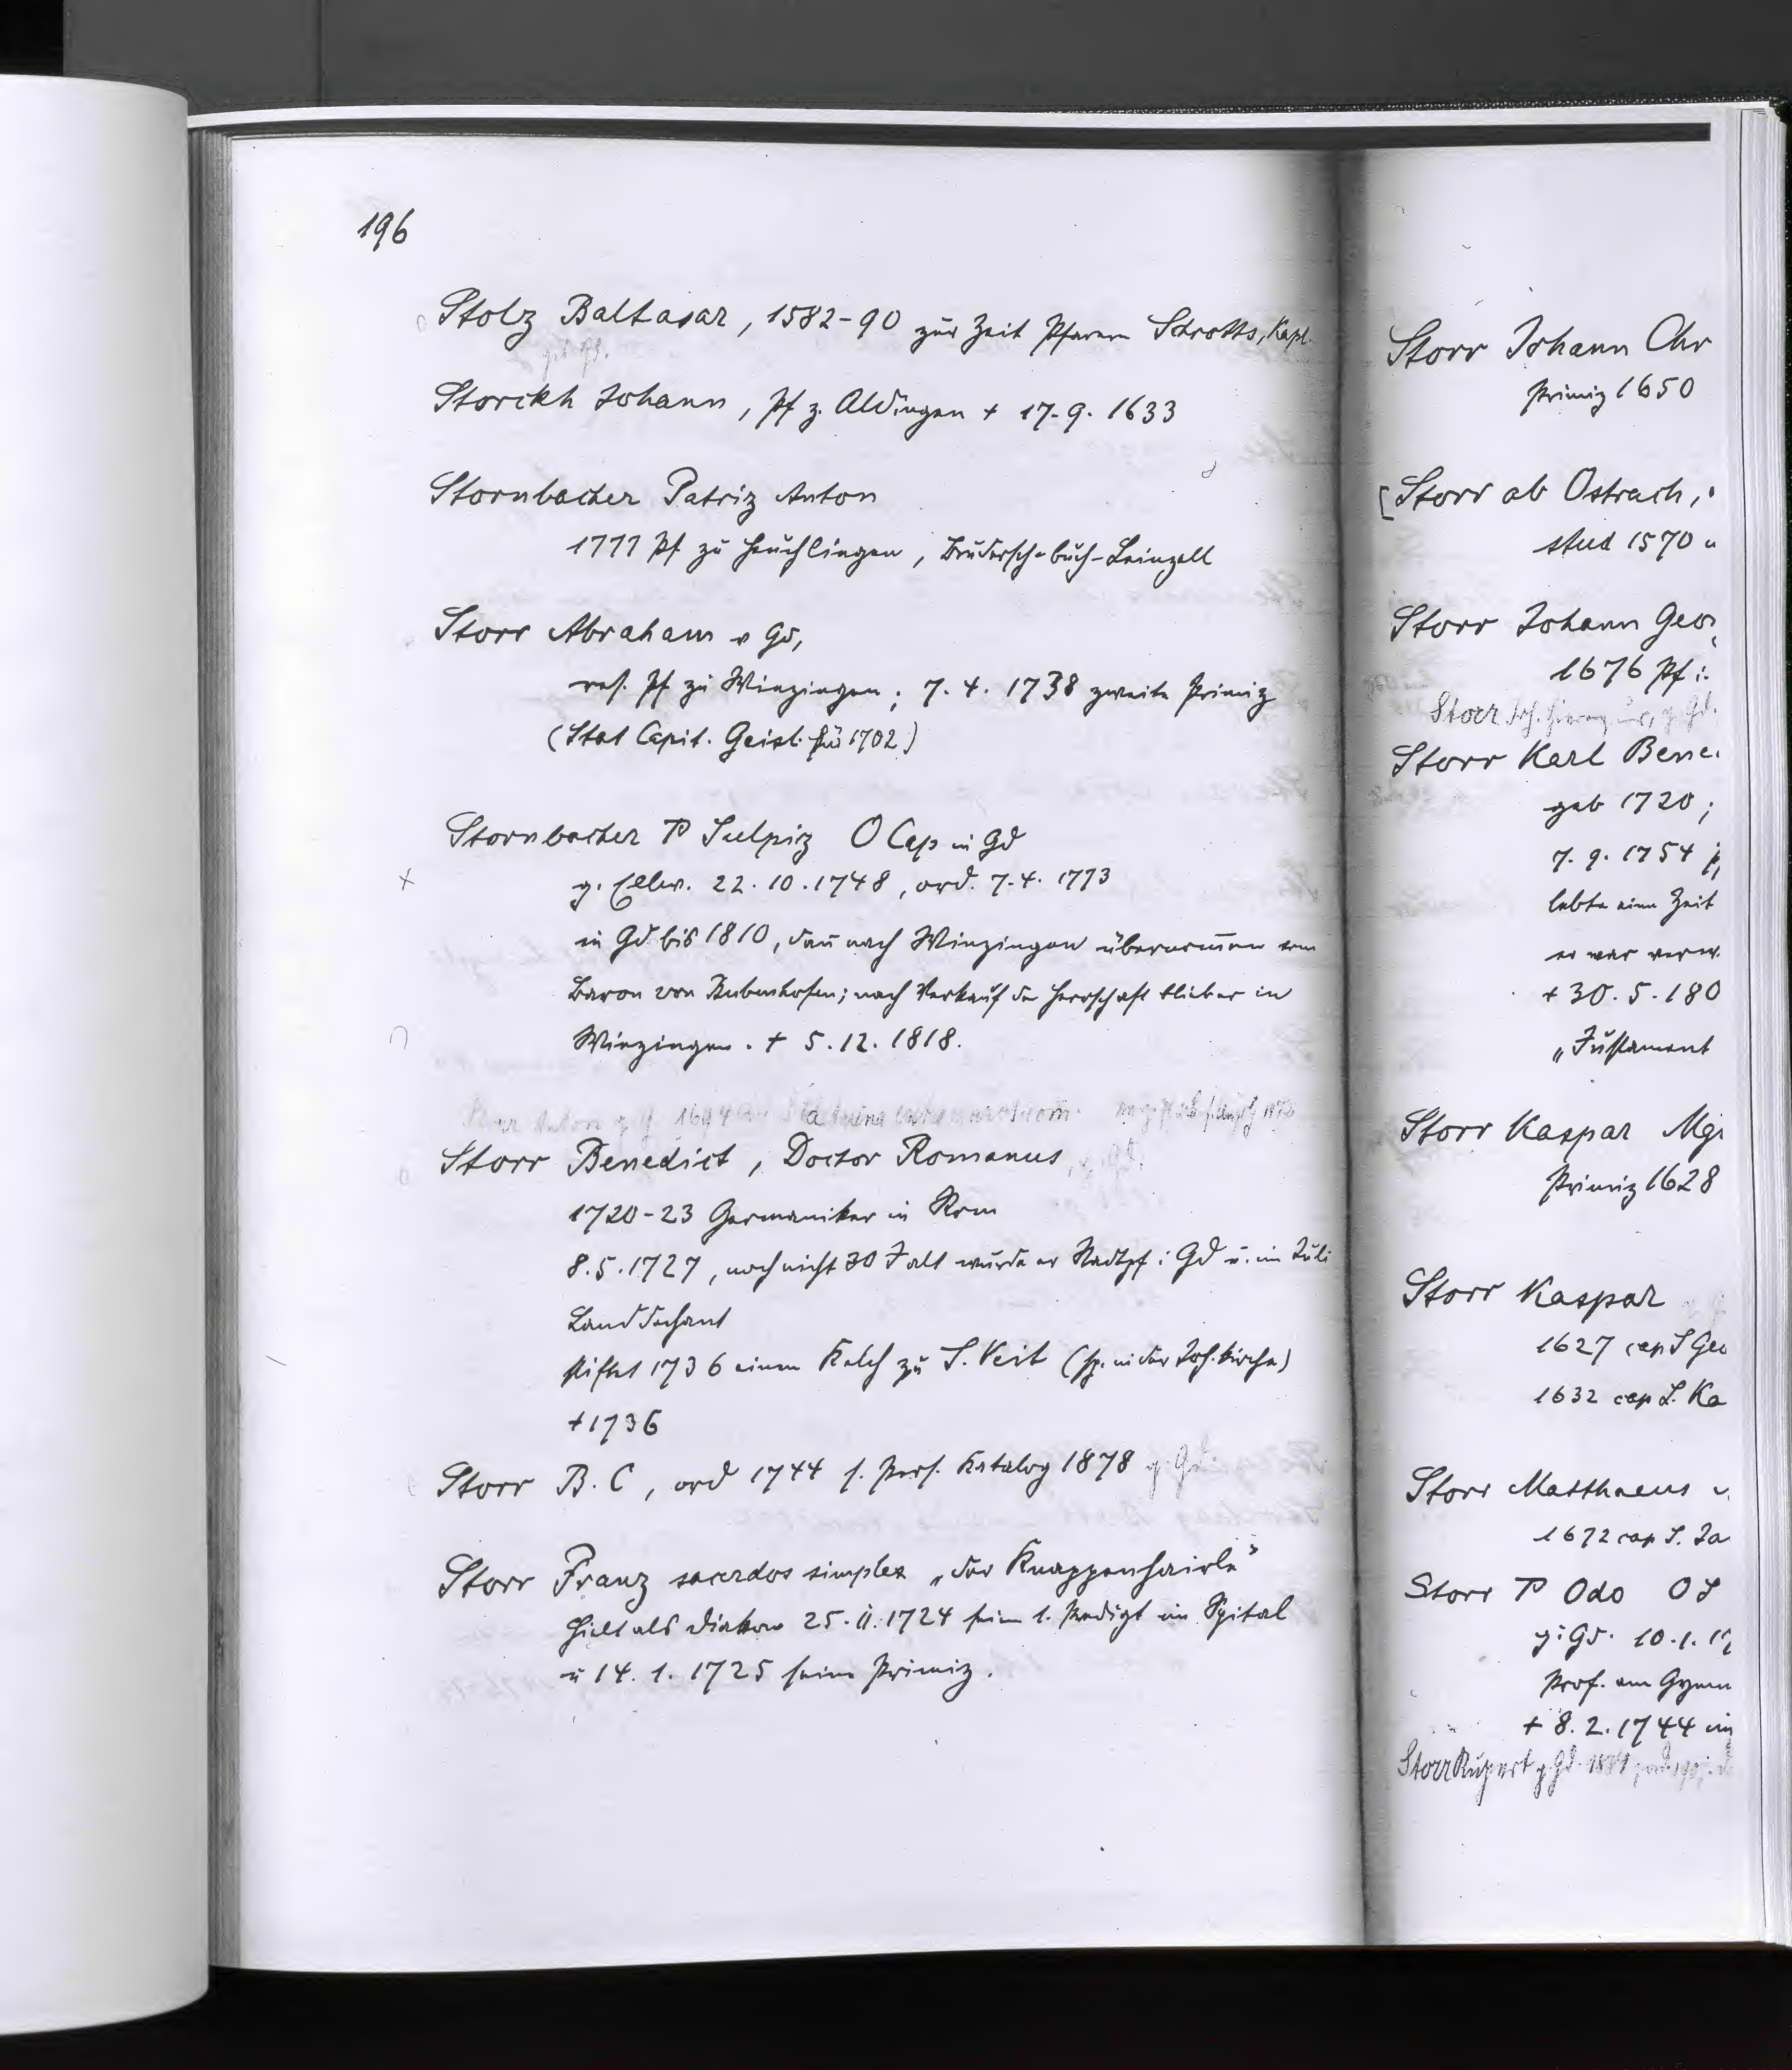 196
Stolz Baltasar, 1582-90 zur Zeit Pfarrers Schrotts, Kapl.
Storckh Johann, Pf z. Aldingen + 17.9.1633
Stornbacher Patriz Anton
1777 Pf zu Heuchlingen, Brudersch-buch-Leinzell
Storr Abraham v Gd,
res. Pf zu Winzingen; 7.4.1738 zweite Primiz
(Stat Capit. Geisl. für 1702)
Stornbacher P Sulpiz O Cap in Gd
g. Ellw. 22.10.1748, ord. 7.4.1773
in Gd bis 1810, dan̄ nach Winzingen übernom̄en vom
Baron von Bubenhofen; nach Verkauf der Herrschaft blieb er in
Winzingen. + 5.12.1818.
Storr Anton g. 1694
Storr Benedict, Doctor Romanus, g. Gd.
1720-23 Germaniker in Rom
8.5.1727, noch nicht 30 J alt wurde er Stadtpf i Gd u. im Juli
Landdechant
stiftet 1736 einen Kelch zu S. Veit (sp. in der Joh. kirche)
+1736
Storr B.C, ord 1744 s. Pers. Katalog 1878 g. Gd.
Storr Franz sacerdos simplex „der Knappenhairle"
hielt als Diakon 25.11.1724 sein 1. Predigt im Spital
u 14.1.1725 seine Primiz.
Storr Johann Chr
Primiz 1650
[Storr ab Ostrach,
stud 1570 u
Storr Johann Geor
1676 Pf i.
Storr Joh. Hieronymus, g. Gd.
Storr Karl Bene
geb 1720;
7.9.1754
lebte eine Zeit
er war verw.
+ 30.5.180
„Instrument
Storr Kaspar Mgr
Primiz 1628
Storr Kaspar
1627 cap S Geo
1632 cap S. Ka
Storr Matthaeus v.
1672 cap S. Ja
Storr P Odo O S
g: Gd. 10.1.17
Prof. am Gymn
+ 8.2.1744 im
Storr Rupert g Gd.